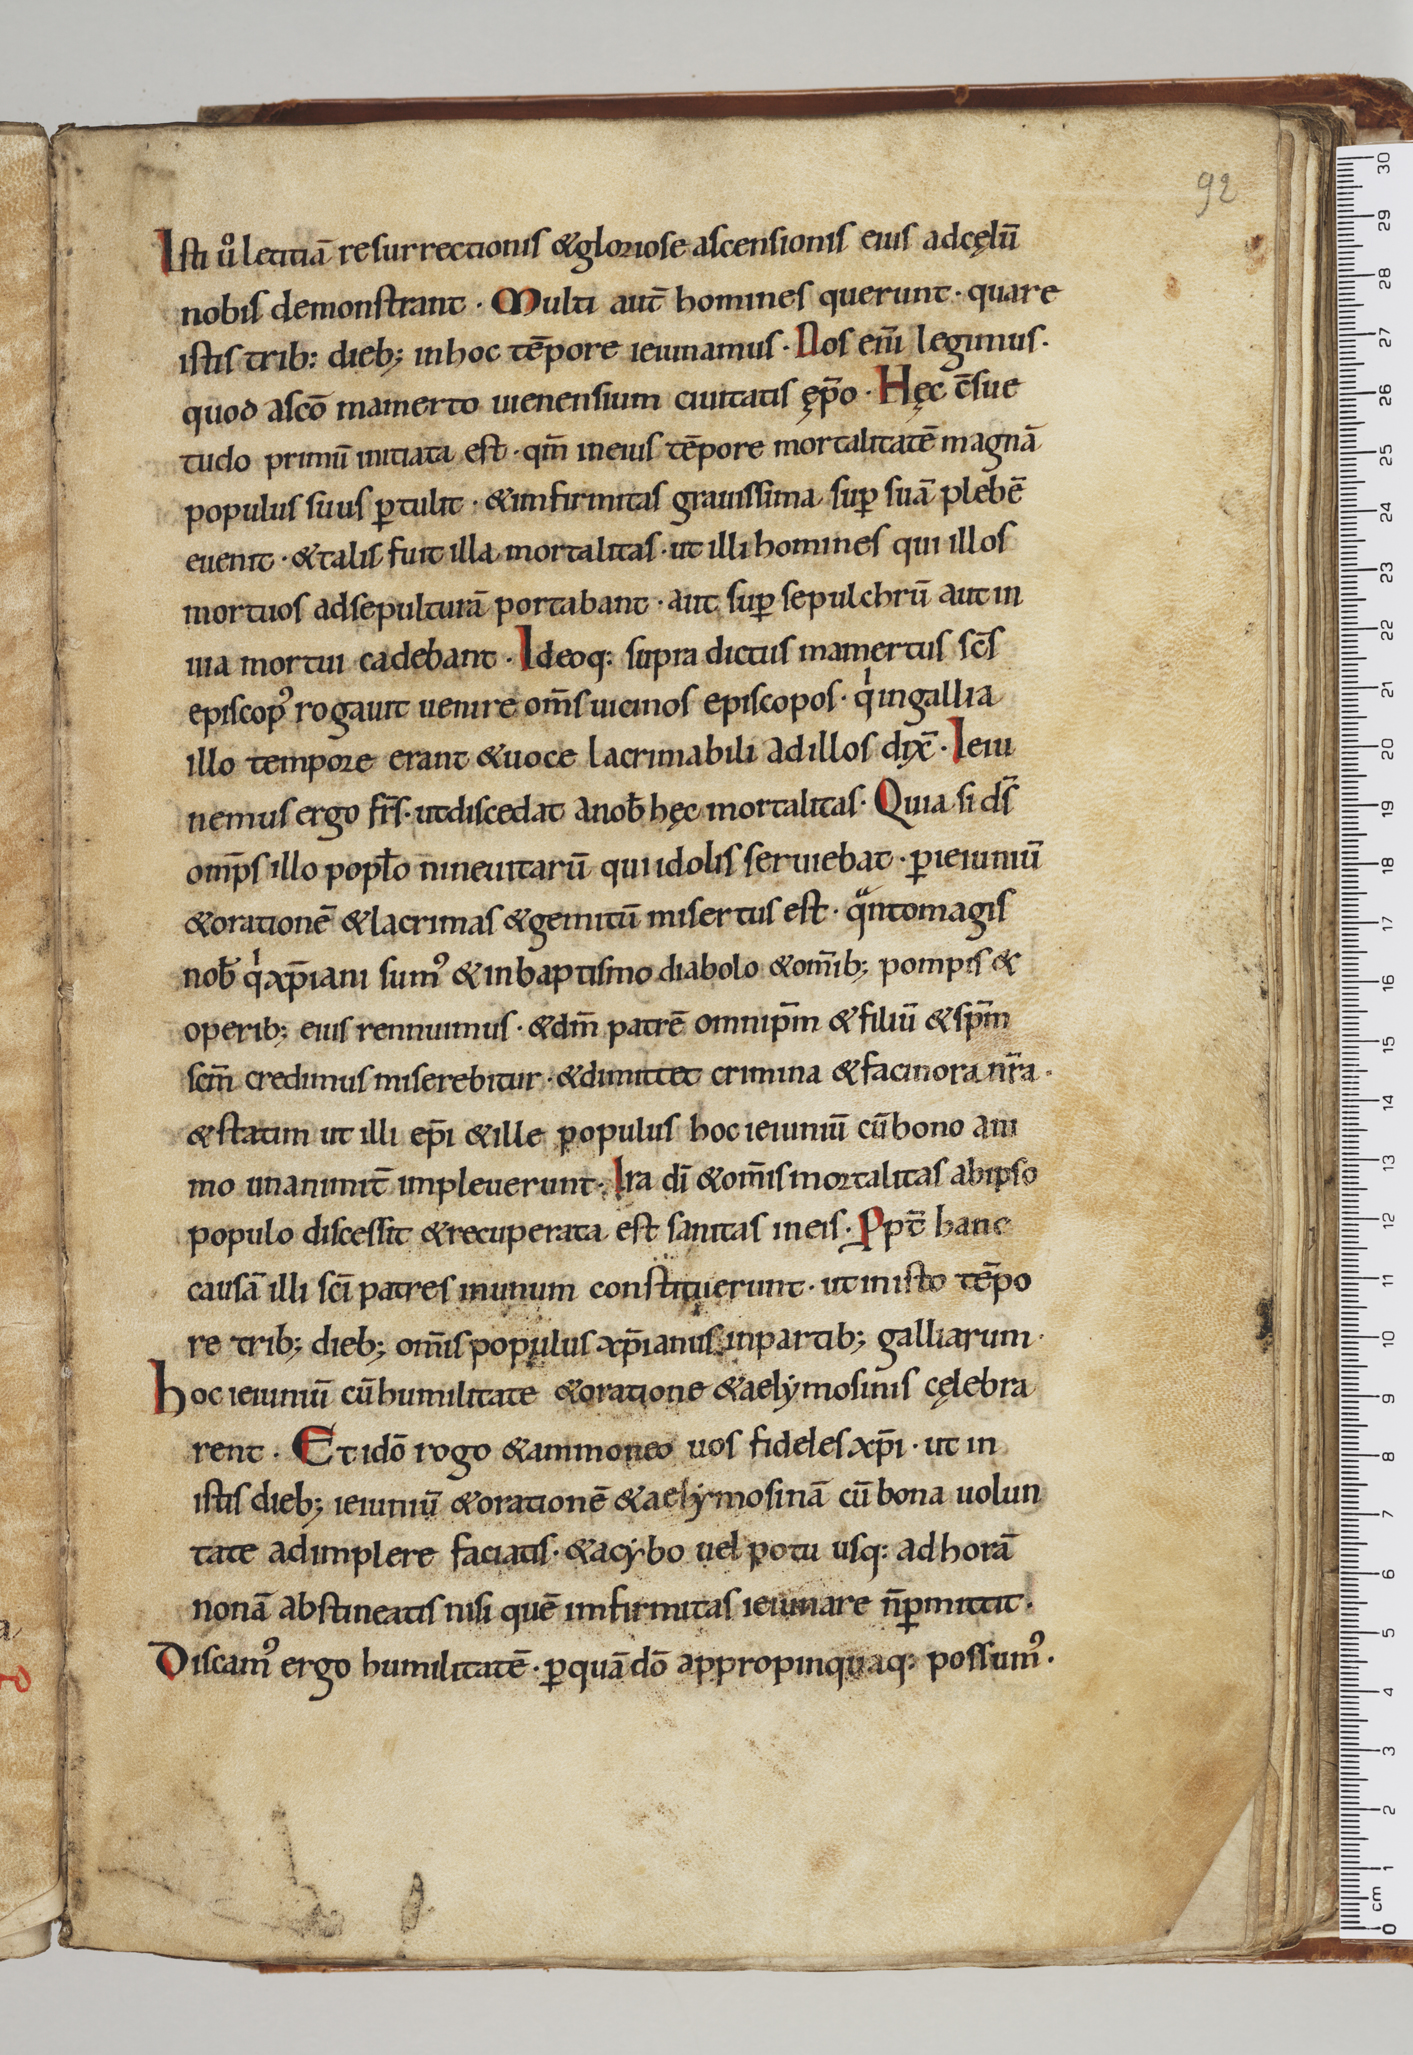 92
Isti ůo letitiā resurrectionis &gloriose ascensionis eius adcęlū
nobis demonstrant · Multi aut̄ homines querunt · quare
istis trib: dieb; inhoc tēpore ieiunamus · Nos eni̅ legimus ·
quod ascō mamerto uienensium ciuitatis ęp̄o · Hęc c̄sue
tudo primū initiata est · qm̄ ineius tēpore mortalitatē magnā
populus suus ꝑtulit · &imfirmitas grauissima suꝑ suā plebē
euenit · &talis fuit illa mortalitas · ut illi homines qui illos
mortuos adsepulturā portabant · aut suꝑ sepulchrū aut in
uia mortui cadebant · Ideoq: supra dictus mamertus sc̄s
episcopꝰ rogauit uenire om̄s uicinos episcopos · qͥingallia
illo tempore erant &uoce lacrimabili adillos dix̄ · Ieiu
nemus ergo fr̄s · utdiscedat anob̄ hęc mortalitas · Quia si ds̄
omp̄s illo popło nineuitarū qui idolis seruiebat · ꝑieiuniū
&orationē &lacrimas &gemitū misertus est · qᷓntomagis
nob̄ qͥxp̄iani sumꝰ &inbaptismo diabolo &om̄ib; pompis &
operib; eius rennuimus · &dm̄ patrē omnip̄m &filiū &sp̄m
scm̄ credimus miserebitur · &dimittet crimina &facinora nr̄a ·
&statim ut illi ep̄i &ille populus hoc ieiuniū cū bono ani
mo unanimit̄ impleuerunt · Ira dī &om̄is mortalitas abipso
populo discessit &recuperata est sanitas ineis · Ꝓpt̄ hanc
causā illi scī patres inunum constituerunt · ut inisto tēpo
re trib; dieb; om̄is populus xp̄ianus inpartib; galliarum ·
hoc ieiuniū cū humilitate &oratione &aelẏmosinis cęlebra
rent · Et idō rogo &ammoneo uos fideles xp̄i · ut in
istis dieb; ieiuniū &orationē &aelẏmosinā cū bona uolun
tate adimplere faciatis · &acẏbo uel potu usq: adhorā
nonā abstineatis nisi quē imfirmitas ieiunare n̄ꝑmittit ·
Discamꝰ ergo humilitatē · ꝑquā dō appropinquaq: possumꝰ ·
30
29
28
27
26
25
24
23
22
21
20
19
18
17
16
15
14
13
12
11
10
9
8
7
6
5
4
3
2
1
cm
0